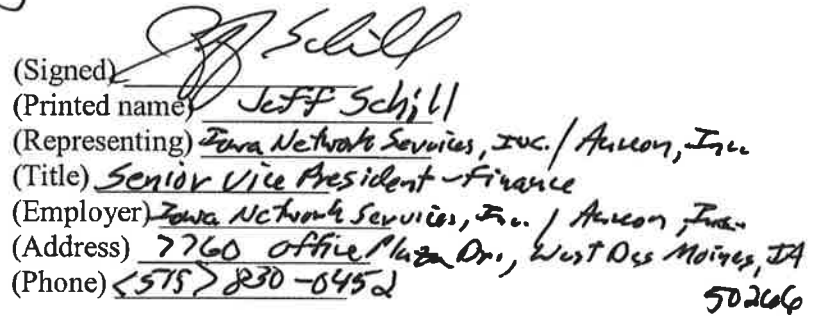 (Signed) Jeff Schill
(Printed name) Jeff Schill
(Representing) Iowa Network Services, Inc. / Aureon, Inc.
(Title) Senior Vice President - Finance
(Employer) Iowa Network Services, Inc. / Aureon, Inc.
(Address) 7760 Office Plaza Dr., West Des Moines, IA
50266
(Phone) <515> 830-0452